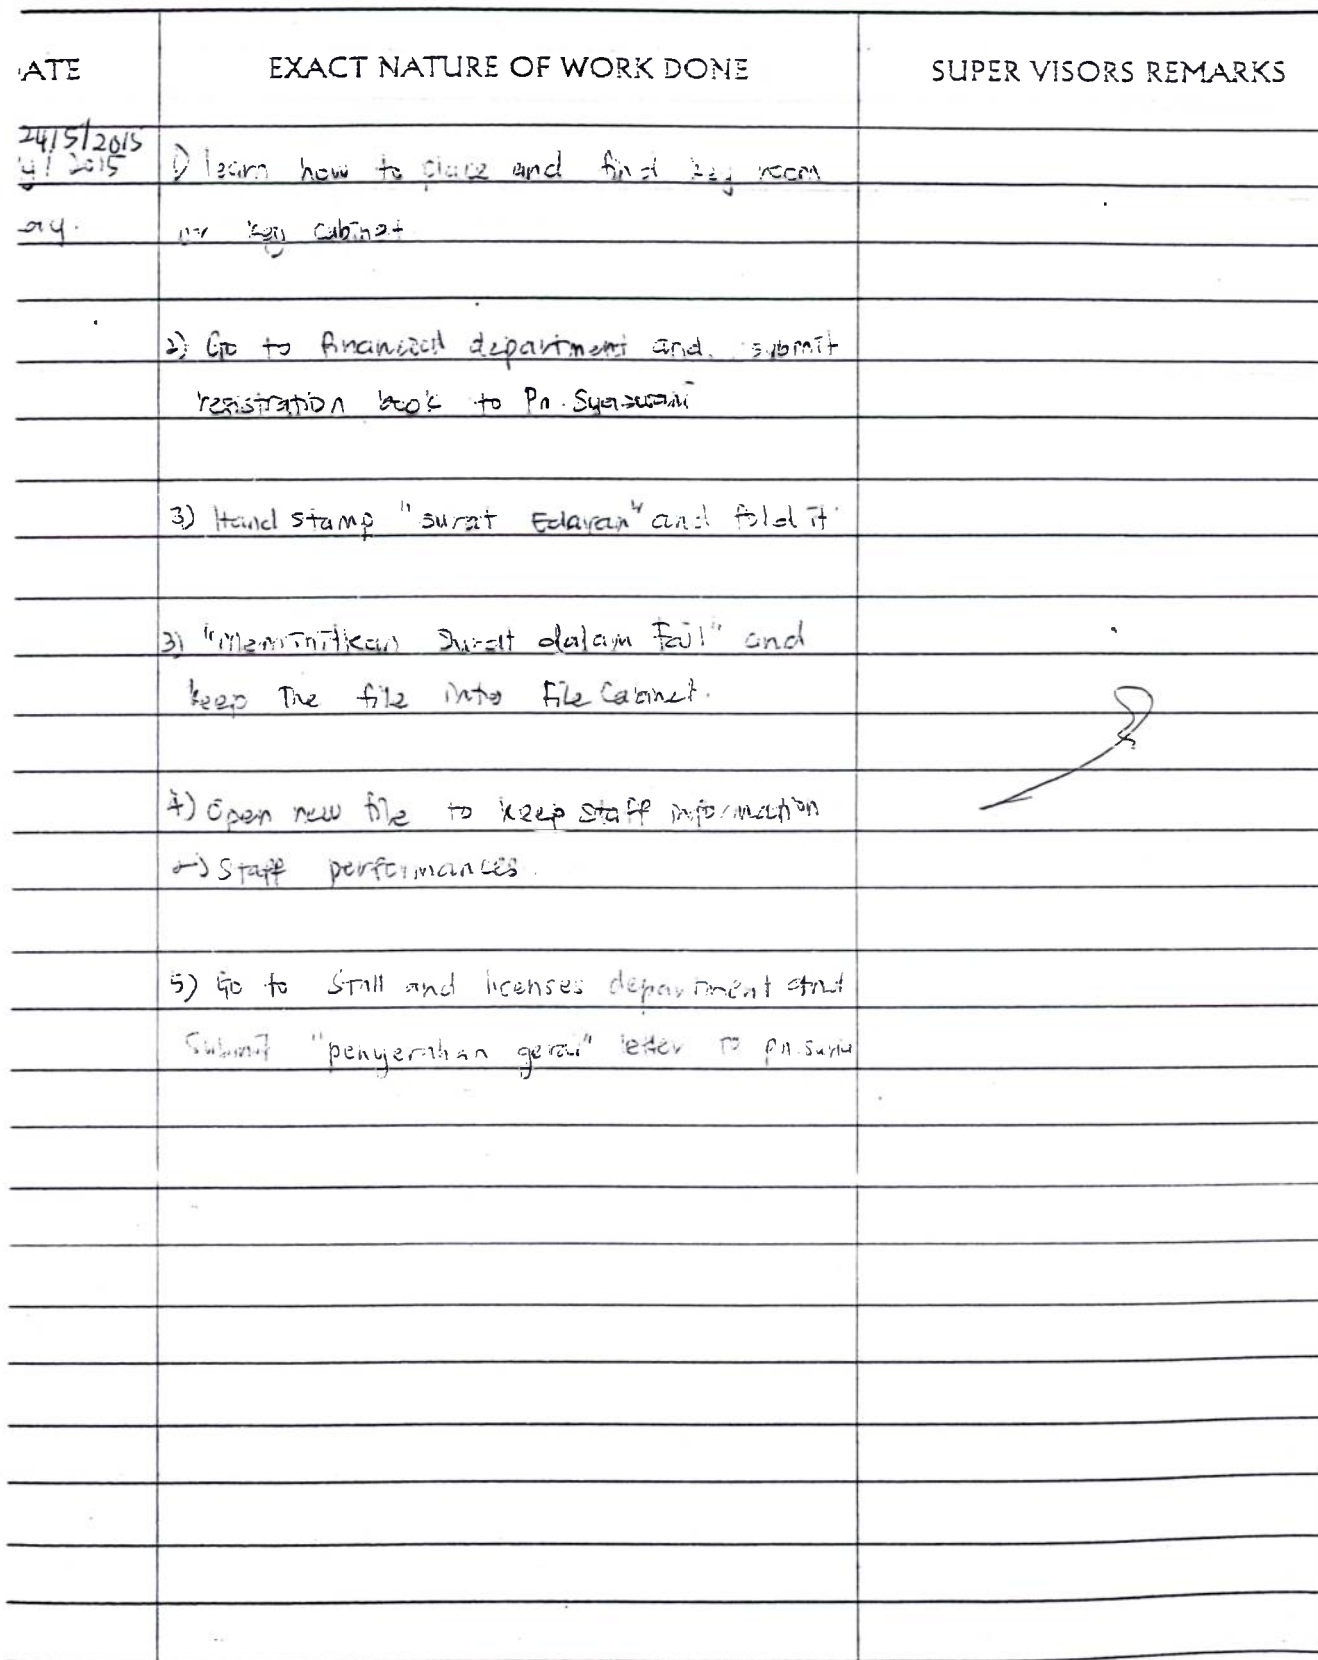 ATE EXACT NATURE OF WORK DONE SUPER VISORS REMARKS
24/5/2015
y/ 2015 1) learn how to place and find key room
ay. or key cabinet
2) Go to financial department and submit
registration book to Pn. Syazwani
3) Hand stamp "surat Edaran" and fold it
3) "Meminitkan Surat dalam Fail" and
keep The file into file Cabinet.
4) Open new file to keep staff information
→ Staff performances
5) Go to Stall and licenses department and
Submit "penyerahan gerai" letter to Pn. Suria